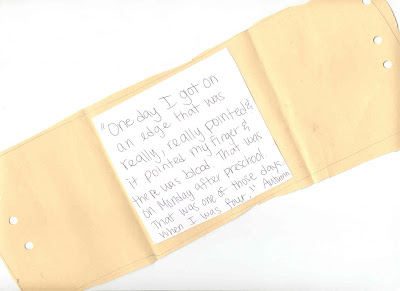 "One day I got on
an edge that was
really, really pointed &
it pointed my finger &
there was blood. That was
on Monday after preschool.
That was one of those days
when I was four." Autumn